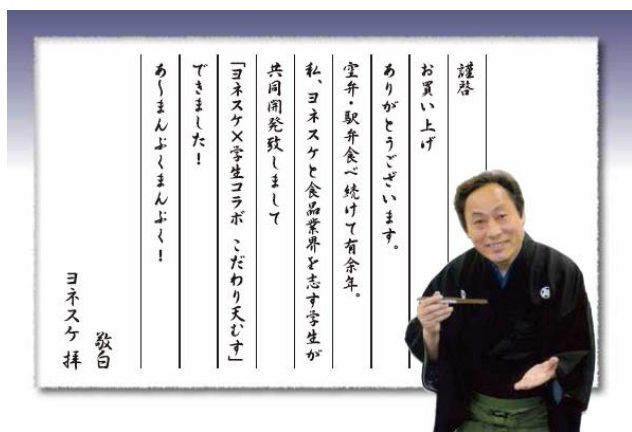 謹啓
お買い上げ
ありがとうございます。
空弁・駅弁食べ続けて有余年。
私、ヨネスケと食品業界を志す学生が
共同開発致しまして
「ヨネスケ×学生コラボ こだわり天むす」
できました！
あ〜まんぷくまんぷく！
敬白
ヨネスケ 拝